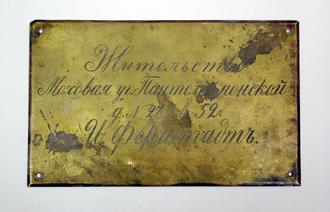 Жительство
Моховая уг. Пантелеймонской
д. № 27 кв. 32.
И. Ферштадтъ.